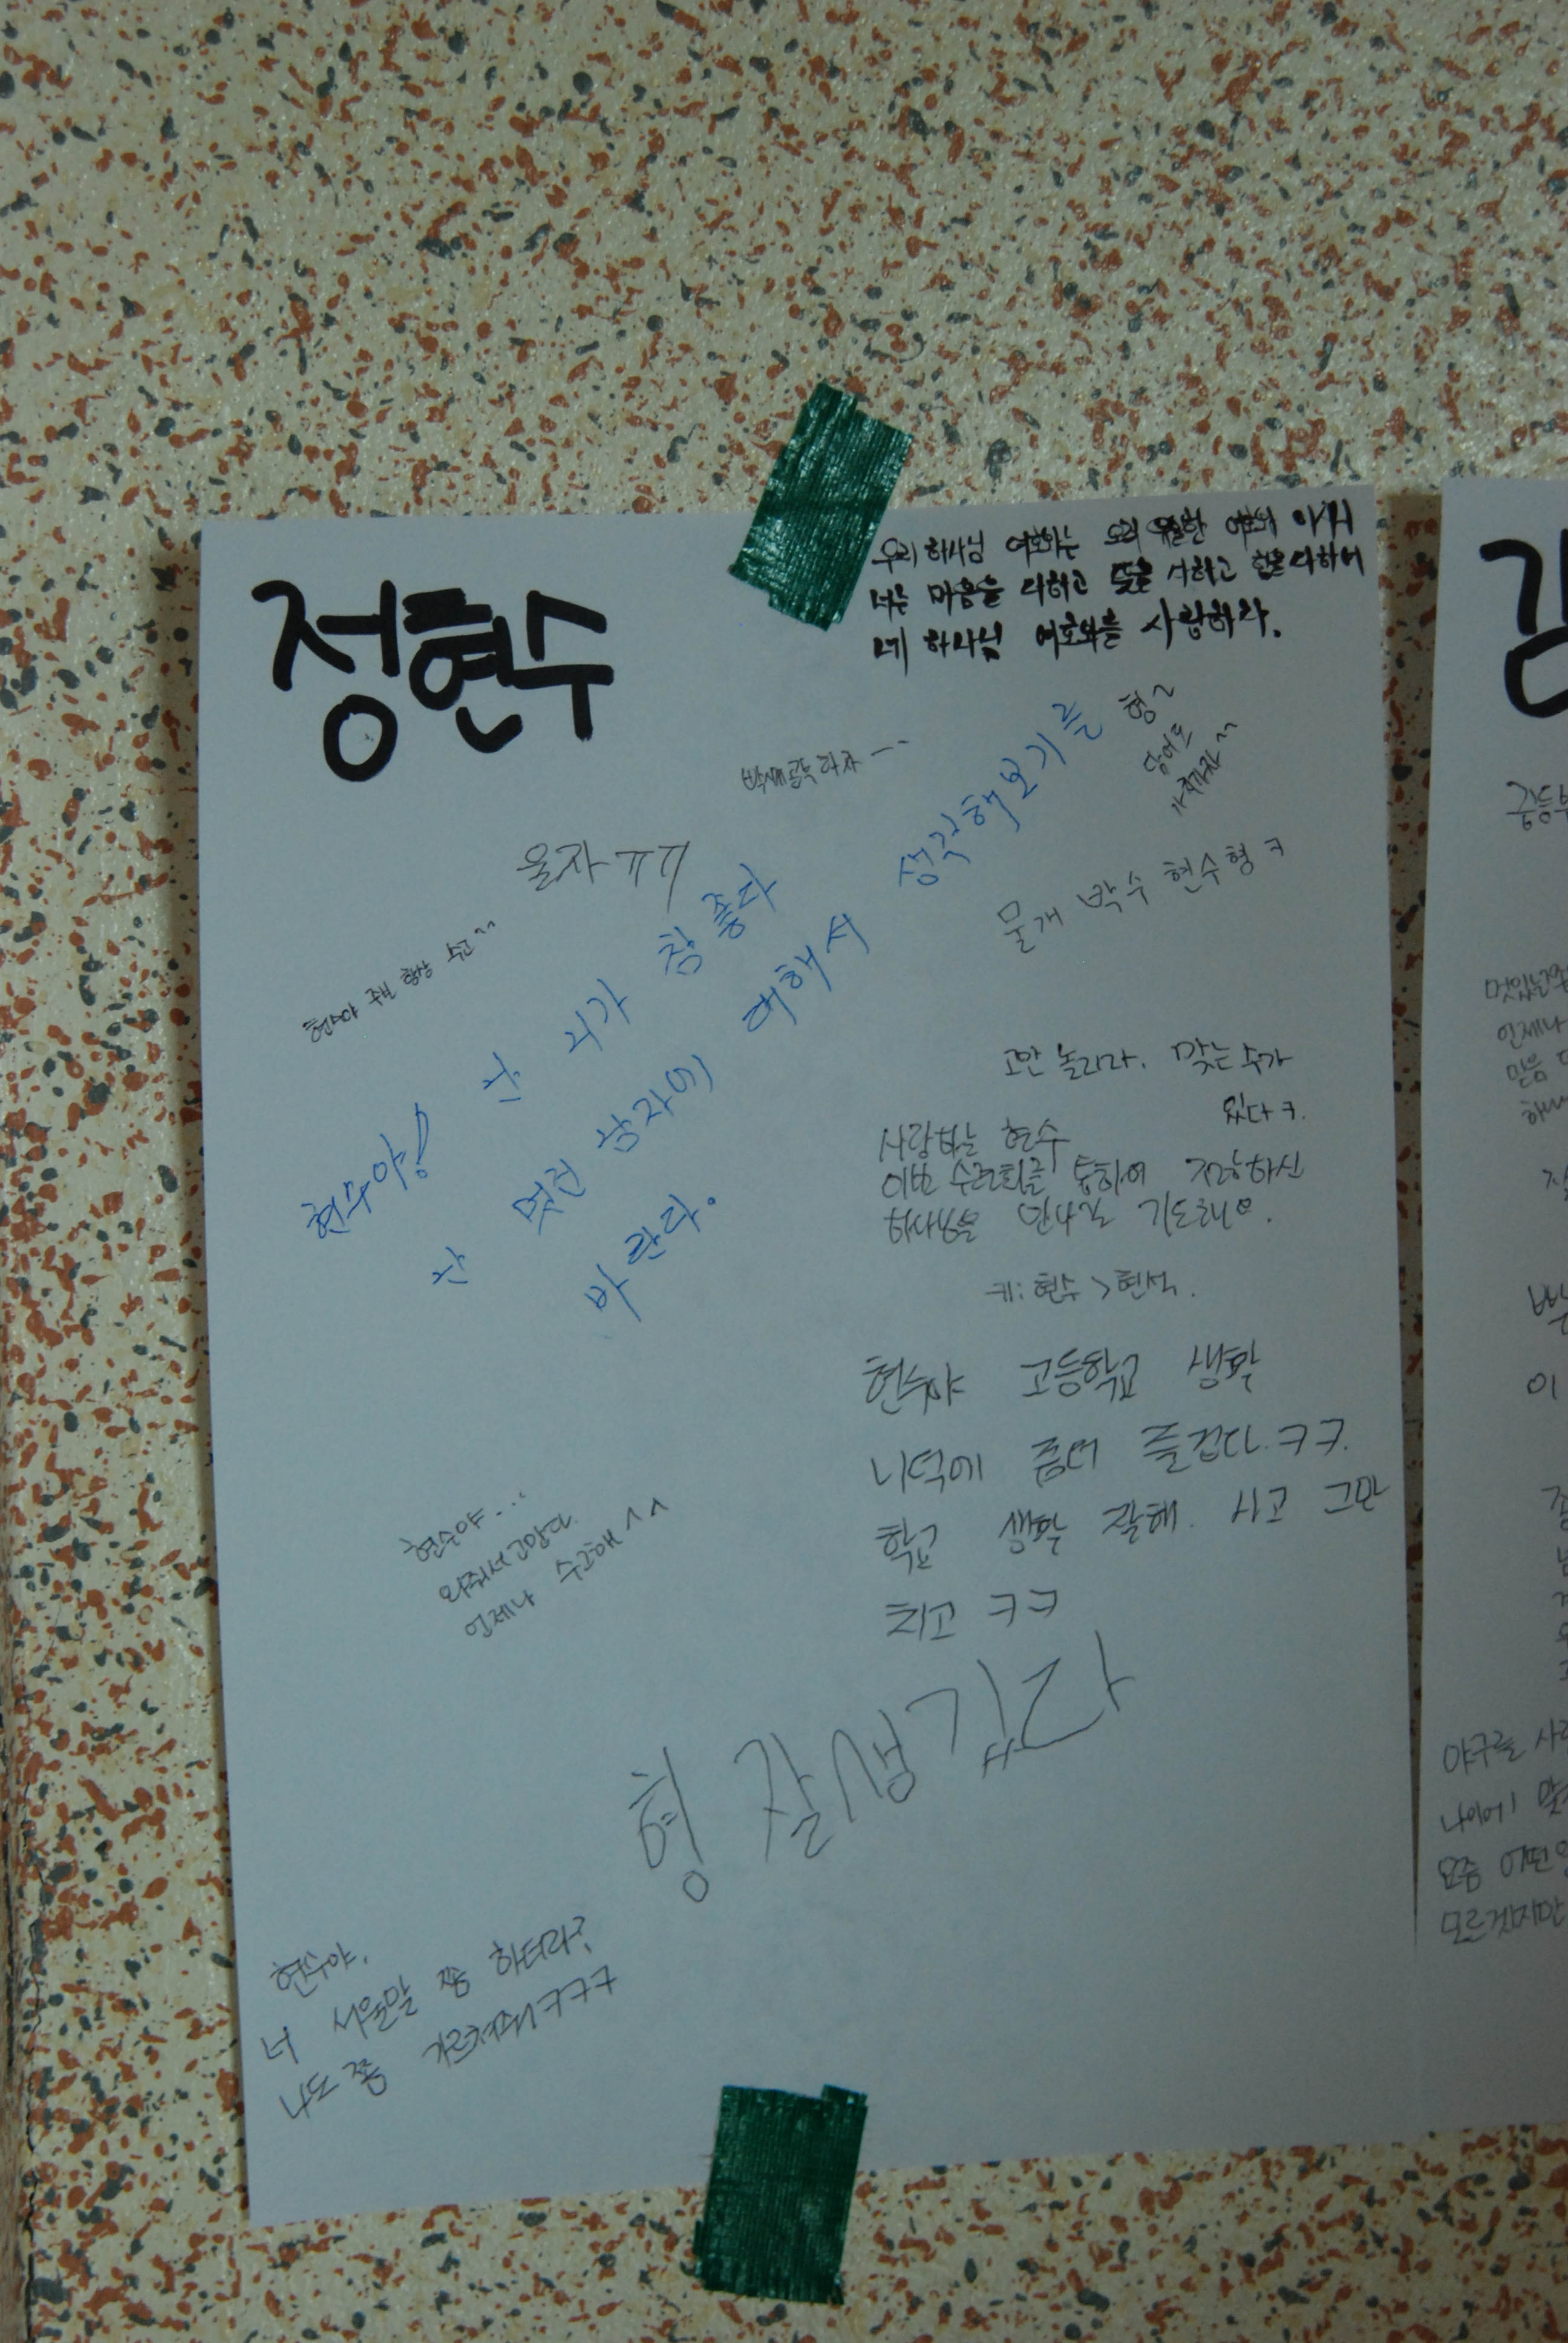 우리 하나님 여호와는 오직 유일한 여호와 이시니
너는 마음을 다하고 뜻을 다하고 힘을 다하여
네 하나님 여호와를 사랑하라.
정현수
형~
담에도
울자 ㅠㅠ
현수야 주보 항상 수고^^
물개 박수 현수형 ㅋ
현수야! 난 니가 참 좋다
난 멋진 남자에 대해서 생각해보기를
바란다.
고만 놀리라. 맞는 수가
있다ㅋ.
사랑하는 현수
이번 수련회를 통하여 전능하신
하나님을 만나길 기도해요.
키: 현수 > 현석.
현수야 고등학교 생활
니덕에 좀더 즐겁다. ㅋㅋ.
학교 생활 잘해. 사고 그만
치고 ㅋㅋ
현수야...
와줘서 고맙다.
언제나 수고해^^
형 잘생깄다
현수야.
너 서울말 쫌 하더라?
나도 쫌 가르쳐줘ㅋㅋㅋ
김
중등부
언제나
믿음
이
야구를 사
나이에
요즘 어떤
모르겠지만